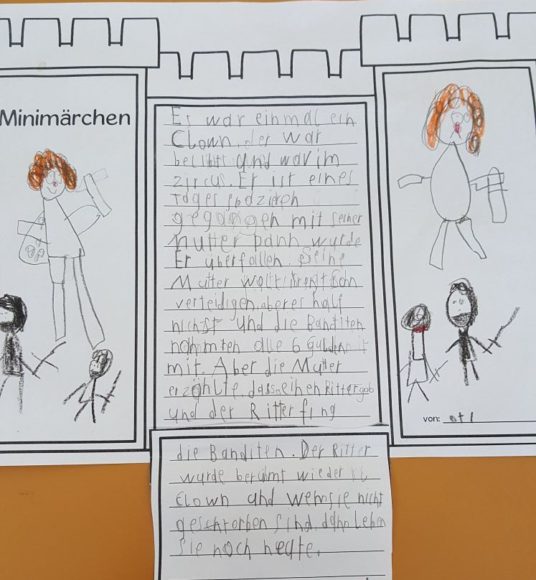 Minimärchen
Es war einmal ein
Clown, der war
berühmt und war im
zircus. Er ist eines
Tages spaziren
gegangen mit seiner
Mutter dann wurde
Er überfallen. seine
Mutter wolte ihren Sohn
verteidigen. aber es half
nichst und die Banditen
nahmten alle 6 gulden
mit. Aber die Mutter
erzählte dass einen Ritter gab
und der Ritter fing
die Banditen. Der Ritter
wurde berühmt wie der
Clown und wenn sie nicht
geschtorben sind dann leben
sie noch heute.
von: